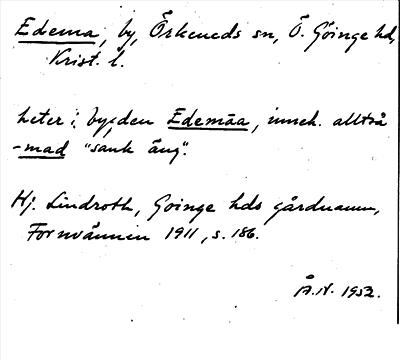 Edema, by, Örkeneds sn, Ö. Göinge hd,
Krist. l.
heter i bygden Edemåa, inneh. alltså
-mad "sank äng".
Hj. Lindroth, Göinge hds gårdnamn,
Fornvännen 1911, s. 186.
Å.N. 1952.